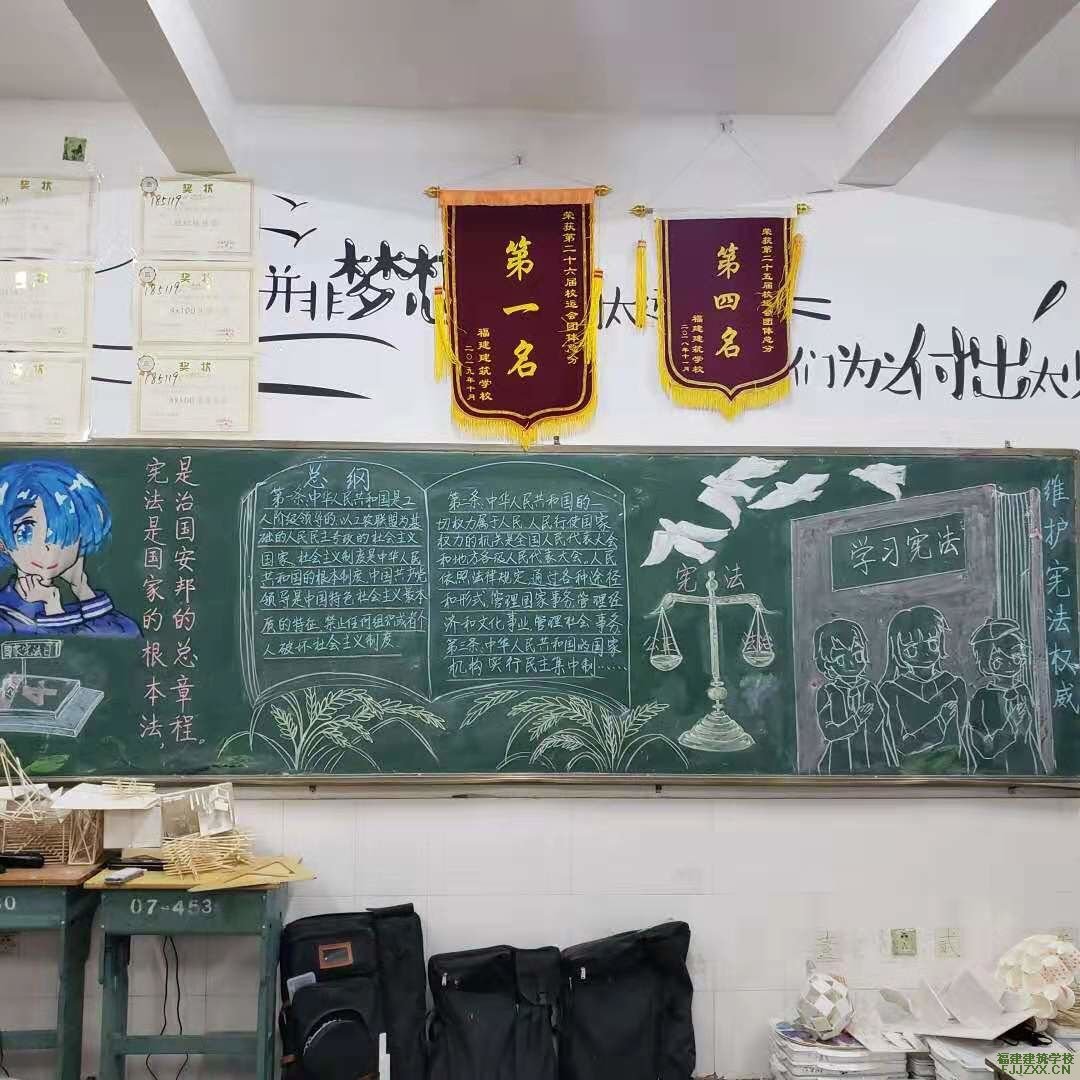 奖状
185119
奖状
185119
奖状
185119
奖状
并非梦想
太
们为之付出太少
荣获第二十六届校运会团体总分
第一名
福建建筑学校
二〇一九年十月
荣获第二十五届校运会团体总分
第四名
福建建筑学校
二〇一八年十一月
宪法是国家的根本法,
是治国安邦的总章程。
国家宪法日
总纲
第一条:中华人民共和国是工
人阶级领导的,以工农联盟为基
础的人民民主专政的社会主义
国家、社会主义制度是中华人民
共和国的根本制度.中国共产党
领导是中国特色社会主义最本
质的特征.禁止任何组织或者个
人破坏社会主义制度
第二条:中华人民共和国的一
切权力属于人民.人民行使国家
权力的机关是全国人民代表大会
和地方各级人民代表大会。人民
依照法律规定,通过各种途径
和形式,管理国家事务,管理经
济和文化事业,管理社会事务
第三条:中华人民共和国的国家
机构实行民主集中制......
宪法
公正
法治
学习宪法
维护宪法权威
07-453
福建建筑学校
FJJZXX.CN